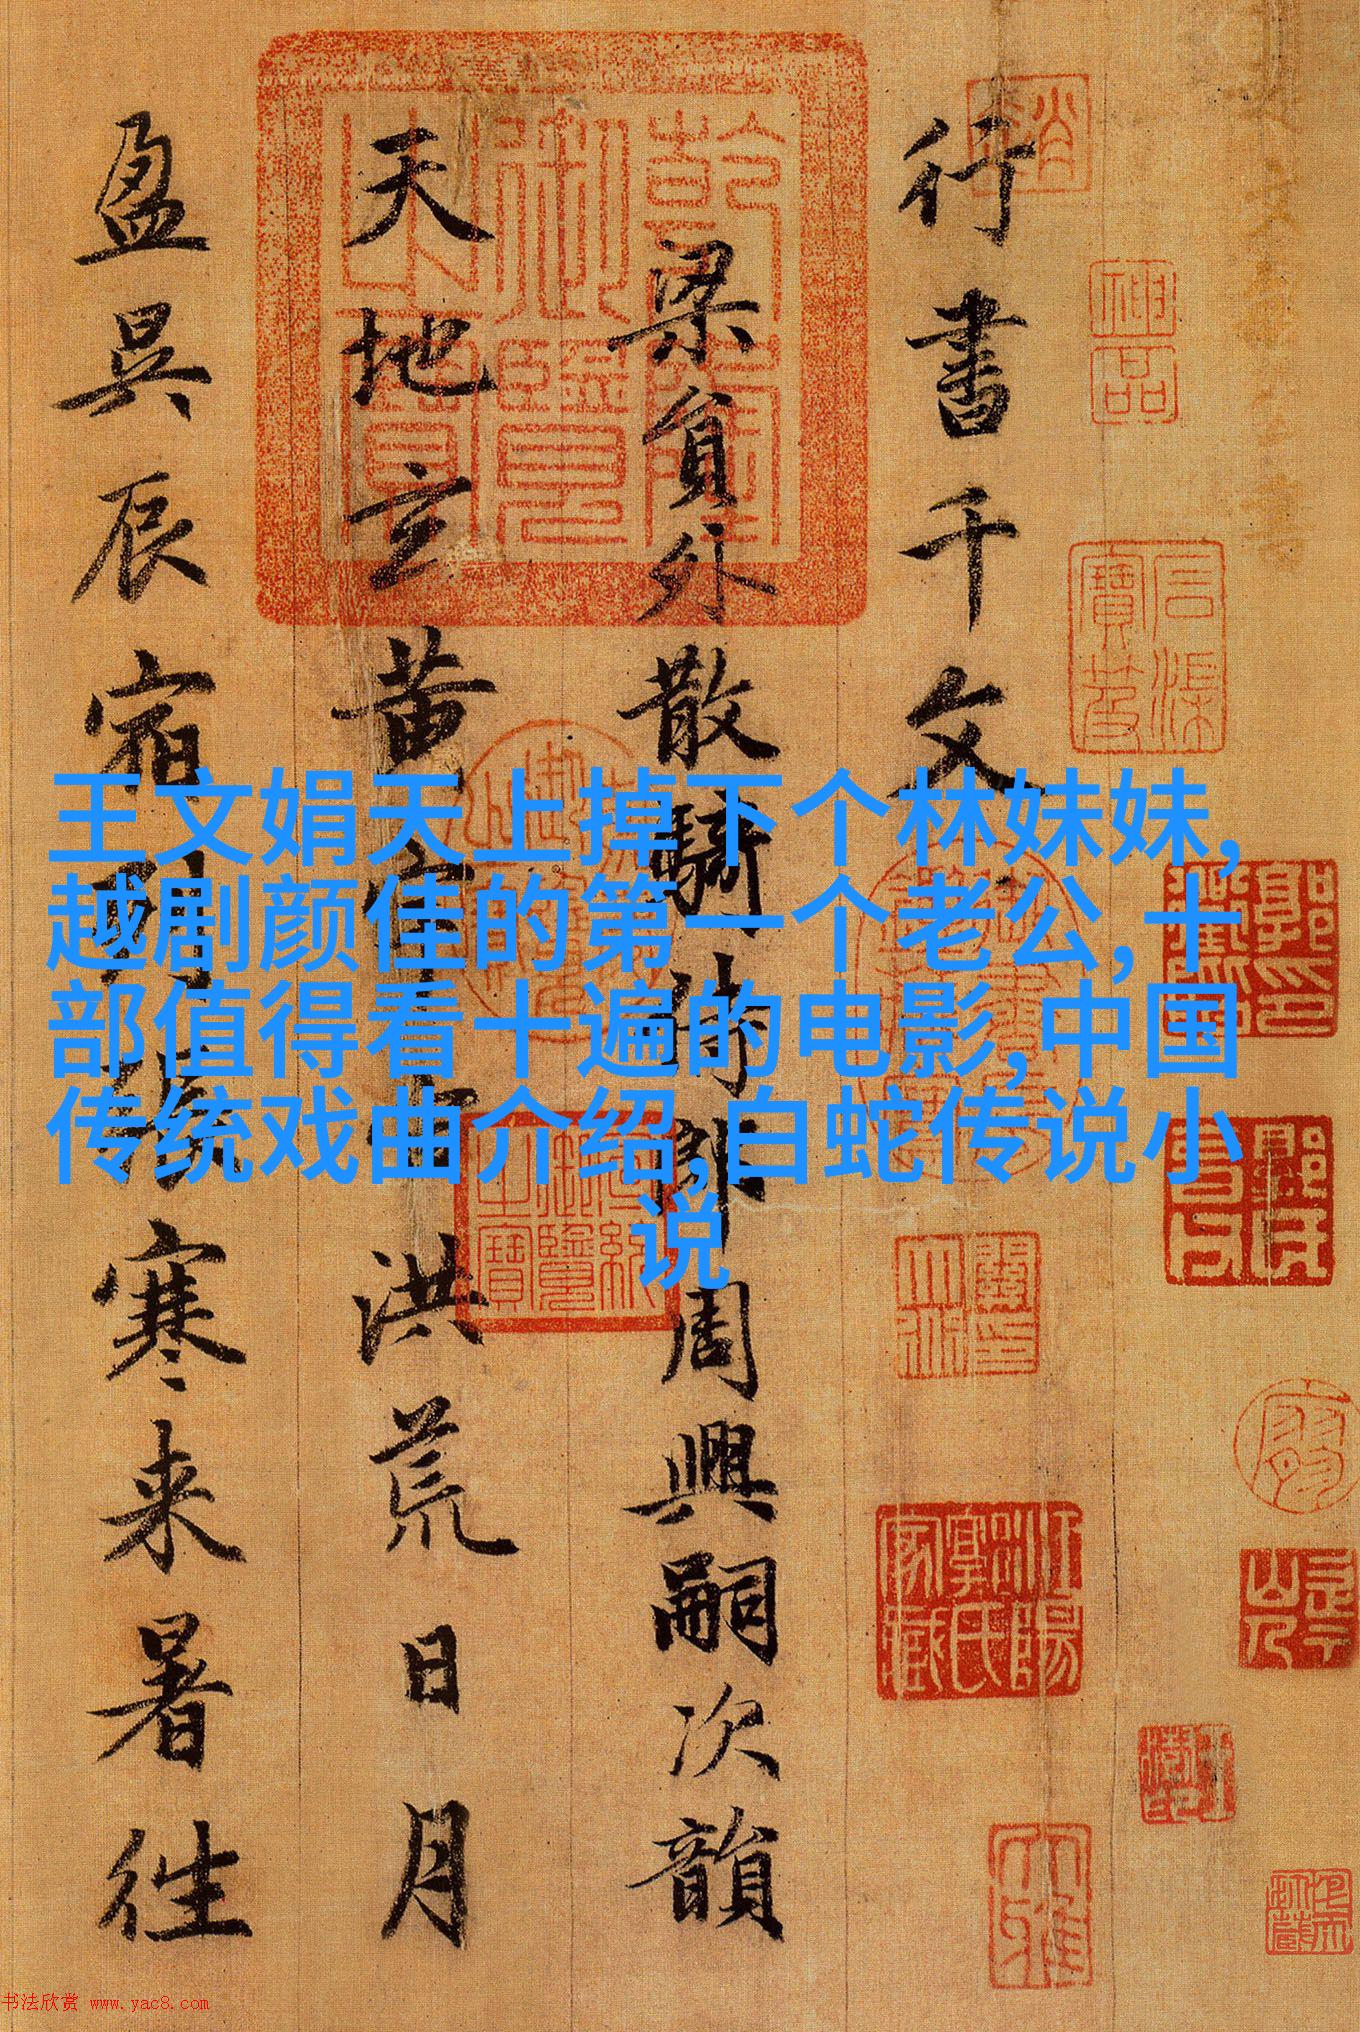 行書千文
梁員外散騎侍郎周興嗣次韻
天地玄黄宇宙洪荒日月
盈昃辰宿列張寒来暑往
王文娟天上掉下个林妹妹,
越剧颜佳的第一个老公,十
部值得看十遍的电影,中国
传统戏曲介绍,白蛇传说小
说
乾隆御覽之寶
神品
石渠寶笈
书法欣赏 www.yac8.com